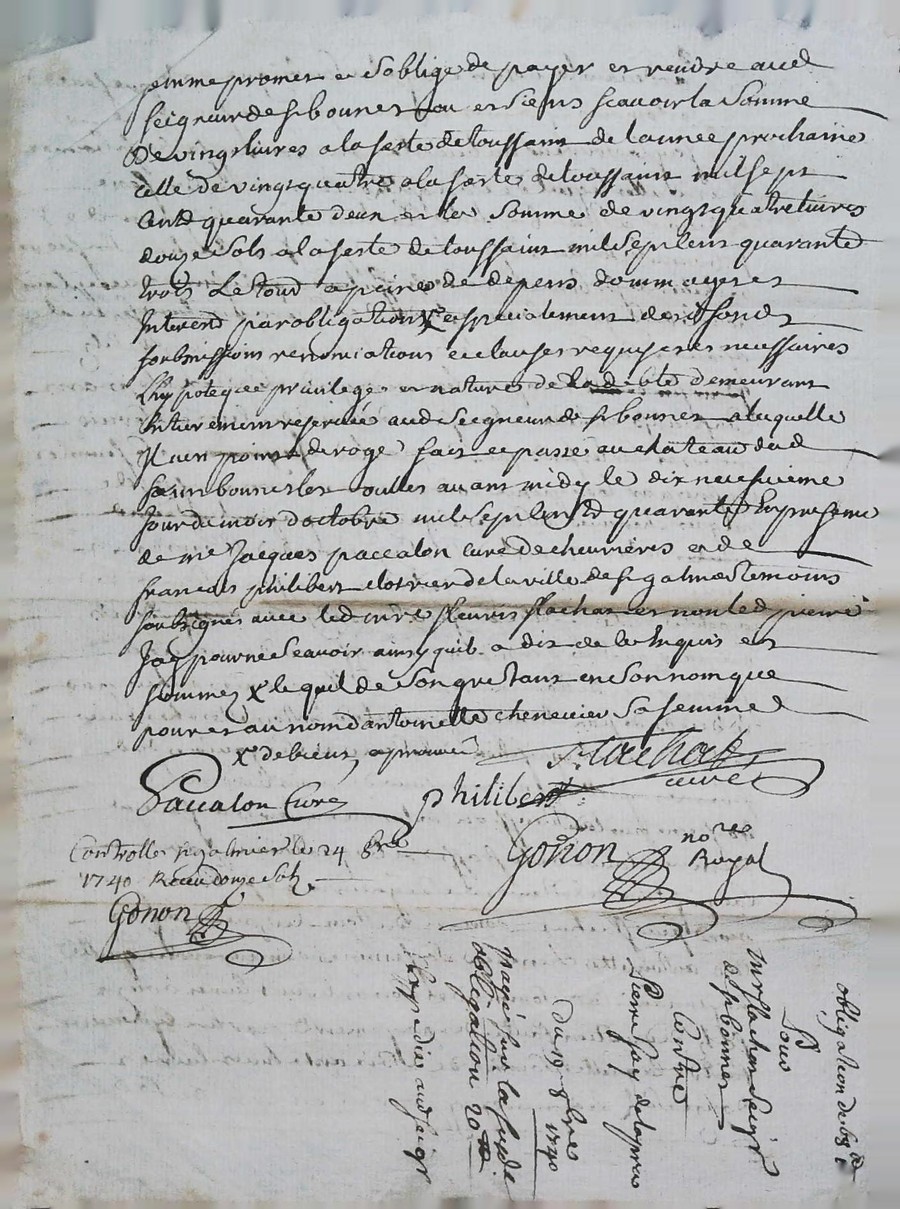 femme promet et s'oblige de payer et rendre aud
seigneur de st bonnet ou es siens scavoir la somme
de vingt livres a la feste de toussaint de l'année prochaine
celle de vingt quatre a la feste de toussaint mil sept
cent quarante deux et la somme de vingt quatre livres
douze sols a la feste de toussaint mil sept cent quarante
trois Le tout a peine de depens dommages et
Interest par obligation X especialement desd fonds
soubmissions renonciations et clauses requises et necessaires
L'hypoteque privilege et nature de la debte demeurant
entierement reservée aud Seigneur de st bonnet a laquelle
Il n'en point deroge fait et passé au château dud
saint bonnet les oulles avant midy le dix neufvieme
jour du mois d'octobre mil sept cent quarante En presence
de me Jacques paccalon curé de chevrieres et de
francois philibert de la ville de st galmier temoins
soubsignés avec led flachat et non led pierre
Jay pour ne scavoir ainsy quil a dit de ce Enquis et
sommé X lequel de son gre tant en son nom que
pour et au nom d'antoinette chenevier sa femme
X de biens aprouvé
flachat
curé
Paccalon Curé
philibert
Gonon nore Royal
Controllé st galmier le 24 8bre
1740 Receu douze sols
Gonon
obligation de 68 lt
Pour
flachat Seigr
de st bonnet
Contre
Pierre Jay
du 19 8bre 1740
payé sur la susde
obligation 20
Expedié aud Seigr